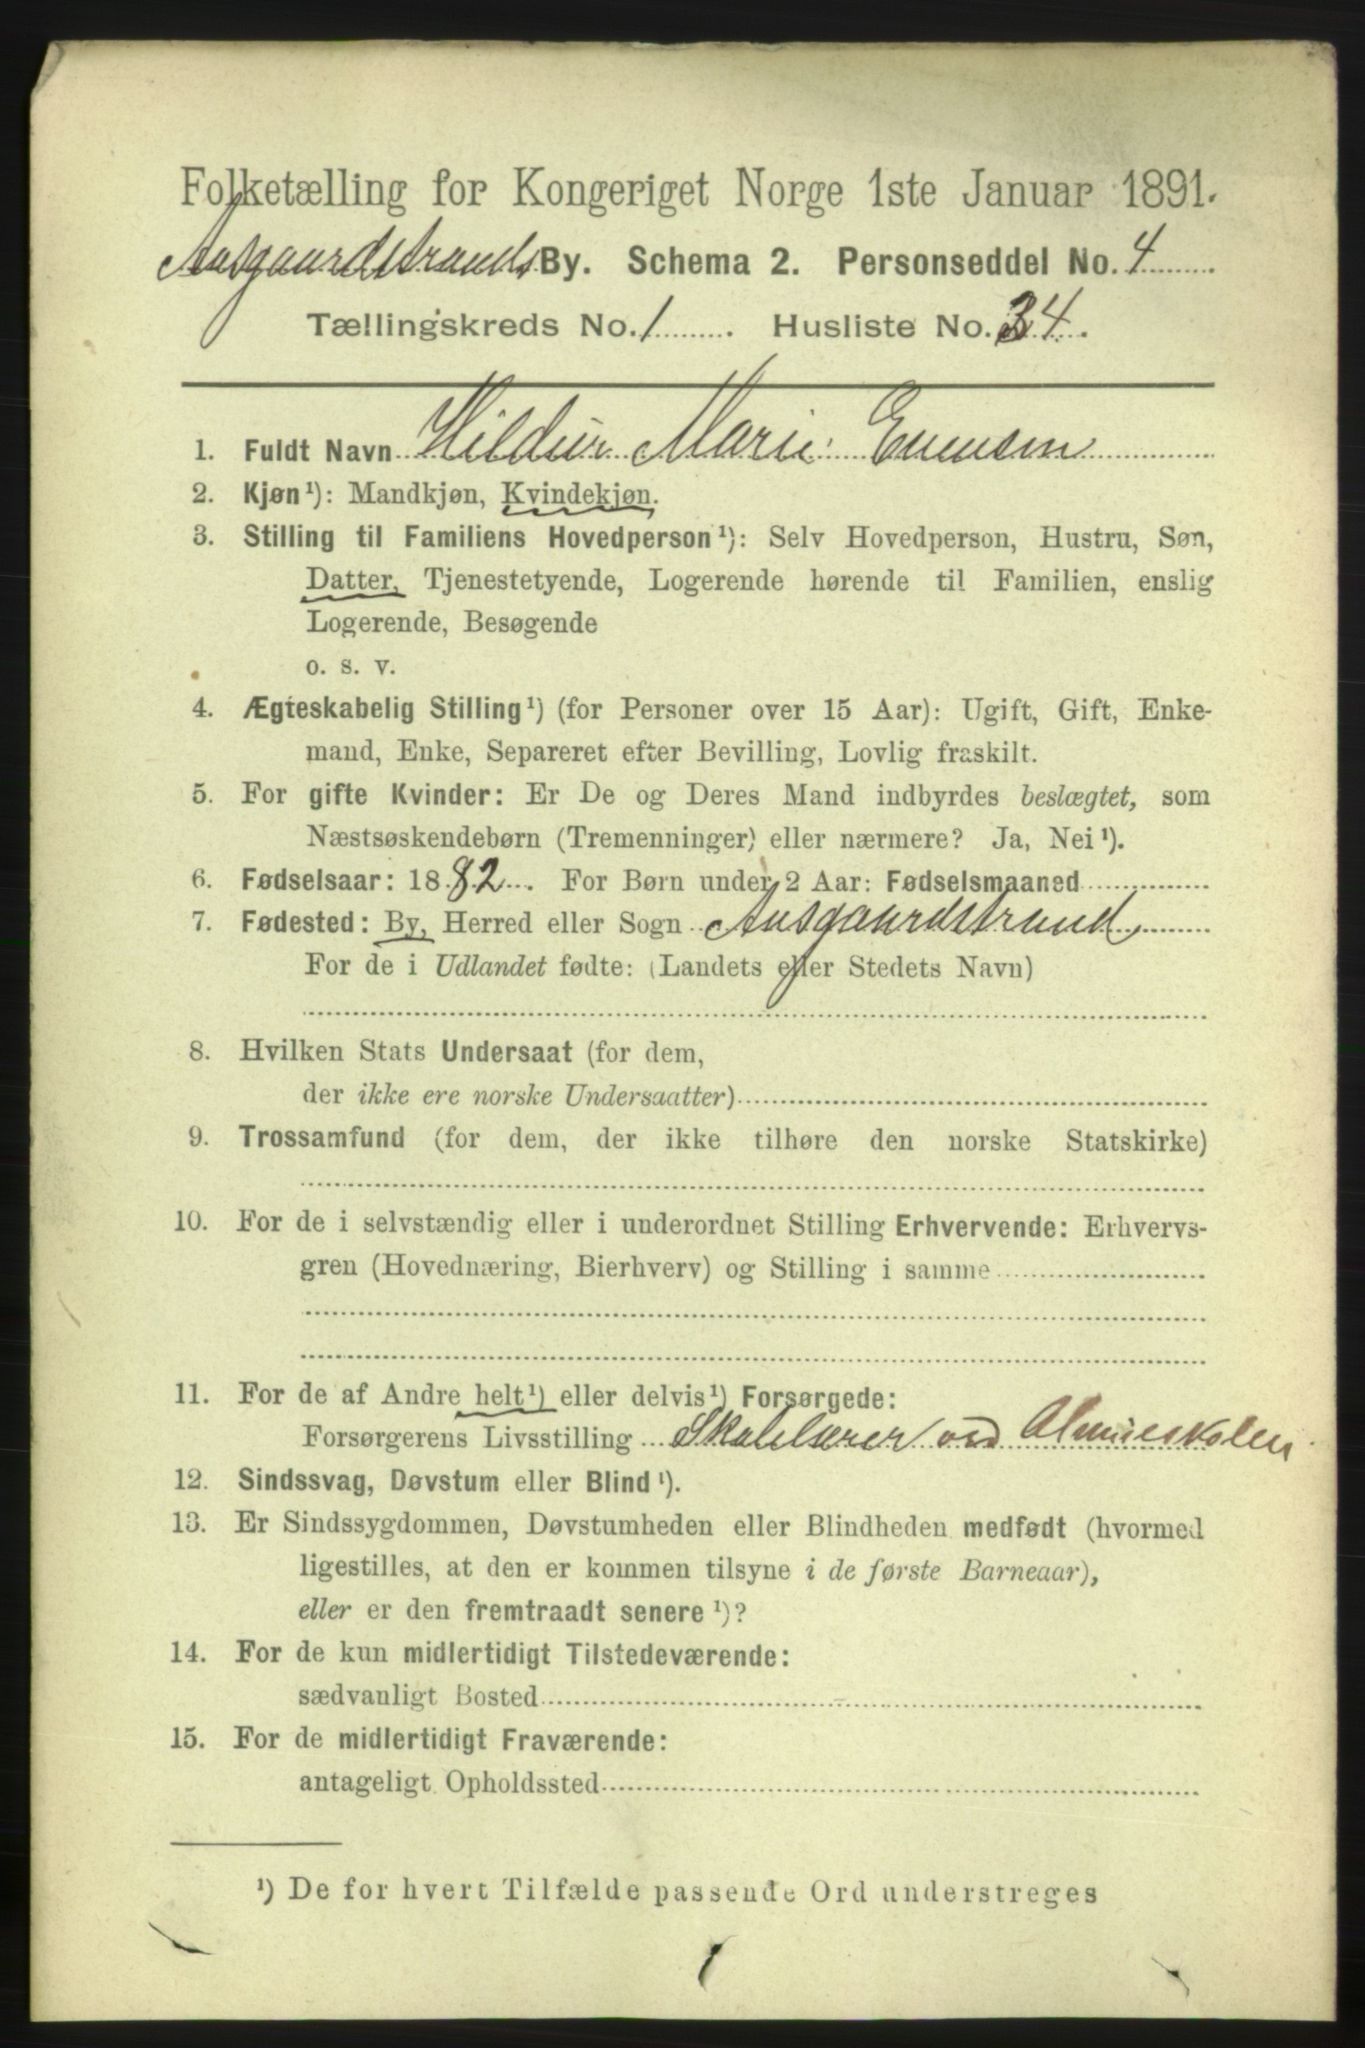 Folketælling for Kongeriget Norge 1ste Januar 1891.
Aasgaardstrands By. Schema 2. Personseddel No. 4
Tællingskreds No. 1. Husliste No. 34.
1. Fuldt Navn Hildur Marie Evensen
2. Kjøn¹): Mandkjøn, Kvindekjøn.
3. Stilling til Familiens Hovedperson¹): Selv Hovedperson, Hustru, Søn,
Datter, Tjenestetyende, Logerende hørende til Familien, enslig
Logerende, Besøgende
o. s. v.
4. Ægteskabelig Stilling¹) (for Personer over 15 Aar): Ugift, Gift, Enke-
mand, Enke, Separeret efter Bevilling, Lovlig fraskilt.
5. For gifte Kvinder: Er De og Deres Mand indbyrdes beslægtet, som
Næstsøskendebørn (Tremenninger) eller nærmere? Ja, Nei¹).
6. Fødselsaar: 1882. For Børn under 2 Aar: Fødselsmaaned
7. Fødested: By, Herred eller Sogn Aasgaardstrand
For de i Udlandet fødte: (Landets eller Stedets Navn)
8. Hvilken Stats Undersaat (for dem,
der ikke ere norske Undersaatter)
9. Trossamfund (for dem, der ikke tilhøre den norske Statskirke)
10. For de i selvstændig eller i underordnet Stilling Erhvervende: Erhvervs-
gren (Hovednæring, Bierhverv) og Stilling i samme
11. For de af Andre helt¹) eller delvis¹) Forsørgede:
Forsørgerens Livsstilling Skolelærer ved Almueskolen
12. Sindssvag, Døvstum eller Blind¹).
13. Er Sindssygdommen, Døvstumheden eller Blindheden medfødt (hvormed
ligestilles, at den er kommen tilsyne i de første Barneaar),
eller er den fremtraadt senere¹)?
14. For de kun midlertidigt Tilstedeværende:
sædvanligt Bosted
15. For de midlertidigt Fraværende:
antageligt Opholdssted
¹) De for hvert Tilfælde passende Ord understreges